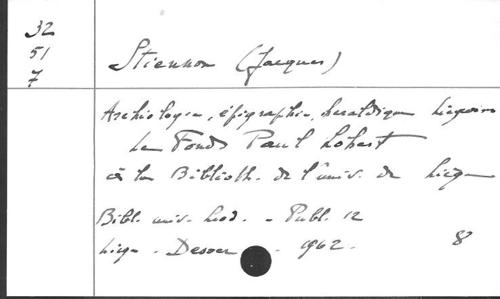 32
51
7
Stiennon (Jacques)
Archéologie, épigraphie, héraldique liégeoises
Le Fonds Paul Lohest
à la Biblioth. de l'Univ. de Liège
Bibl. univ. leod. - Publ. 12
Liège - Desoer - 1962. 8